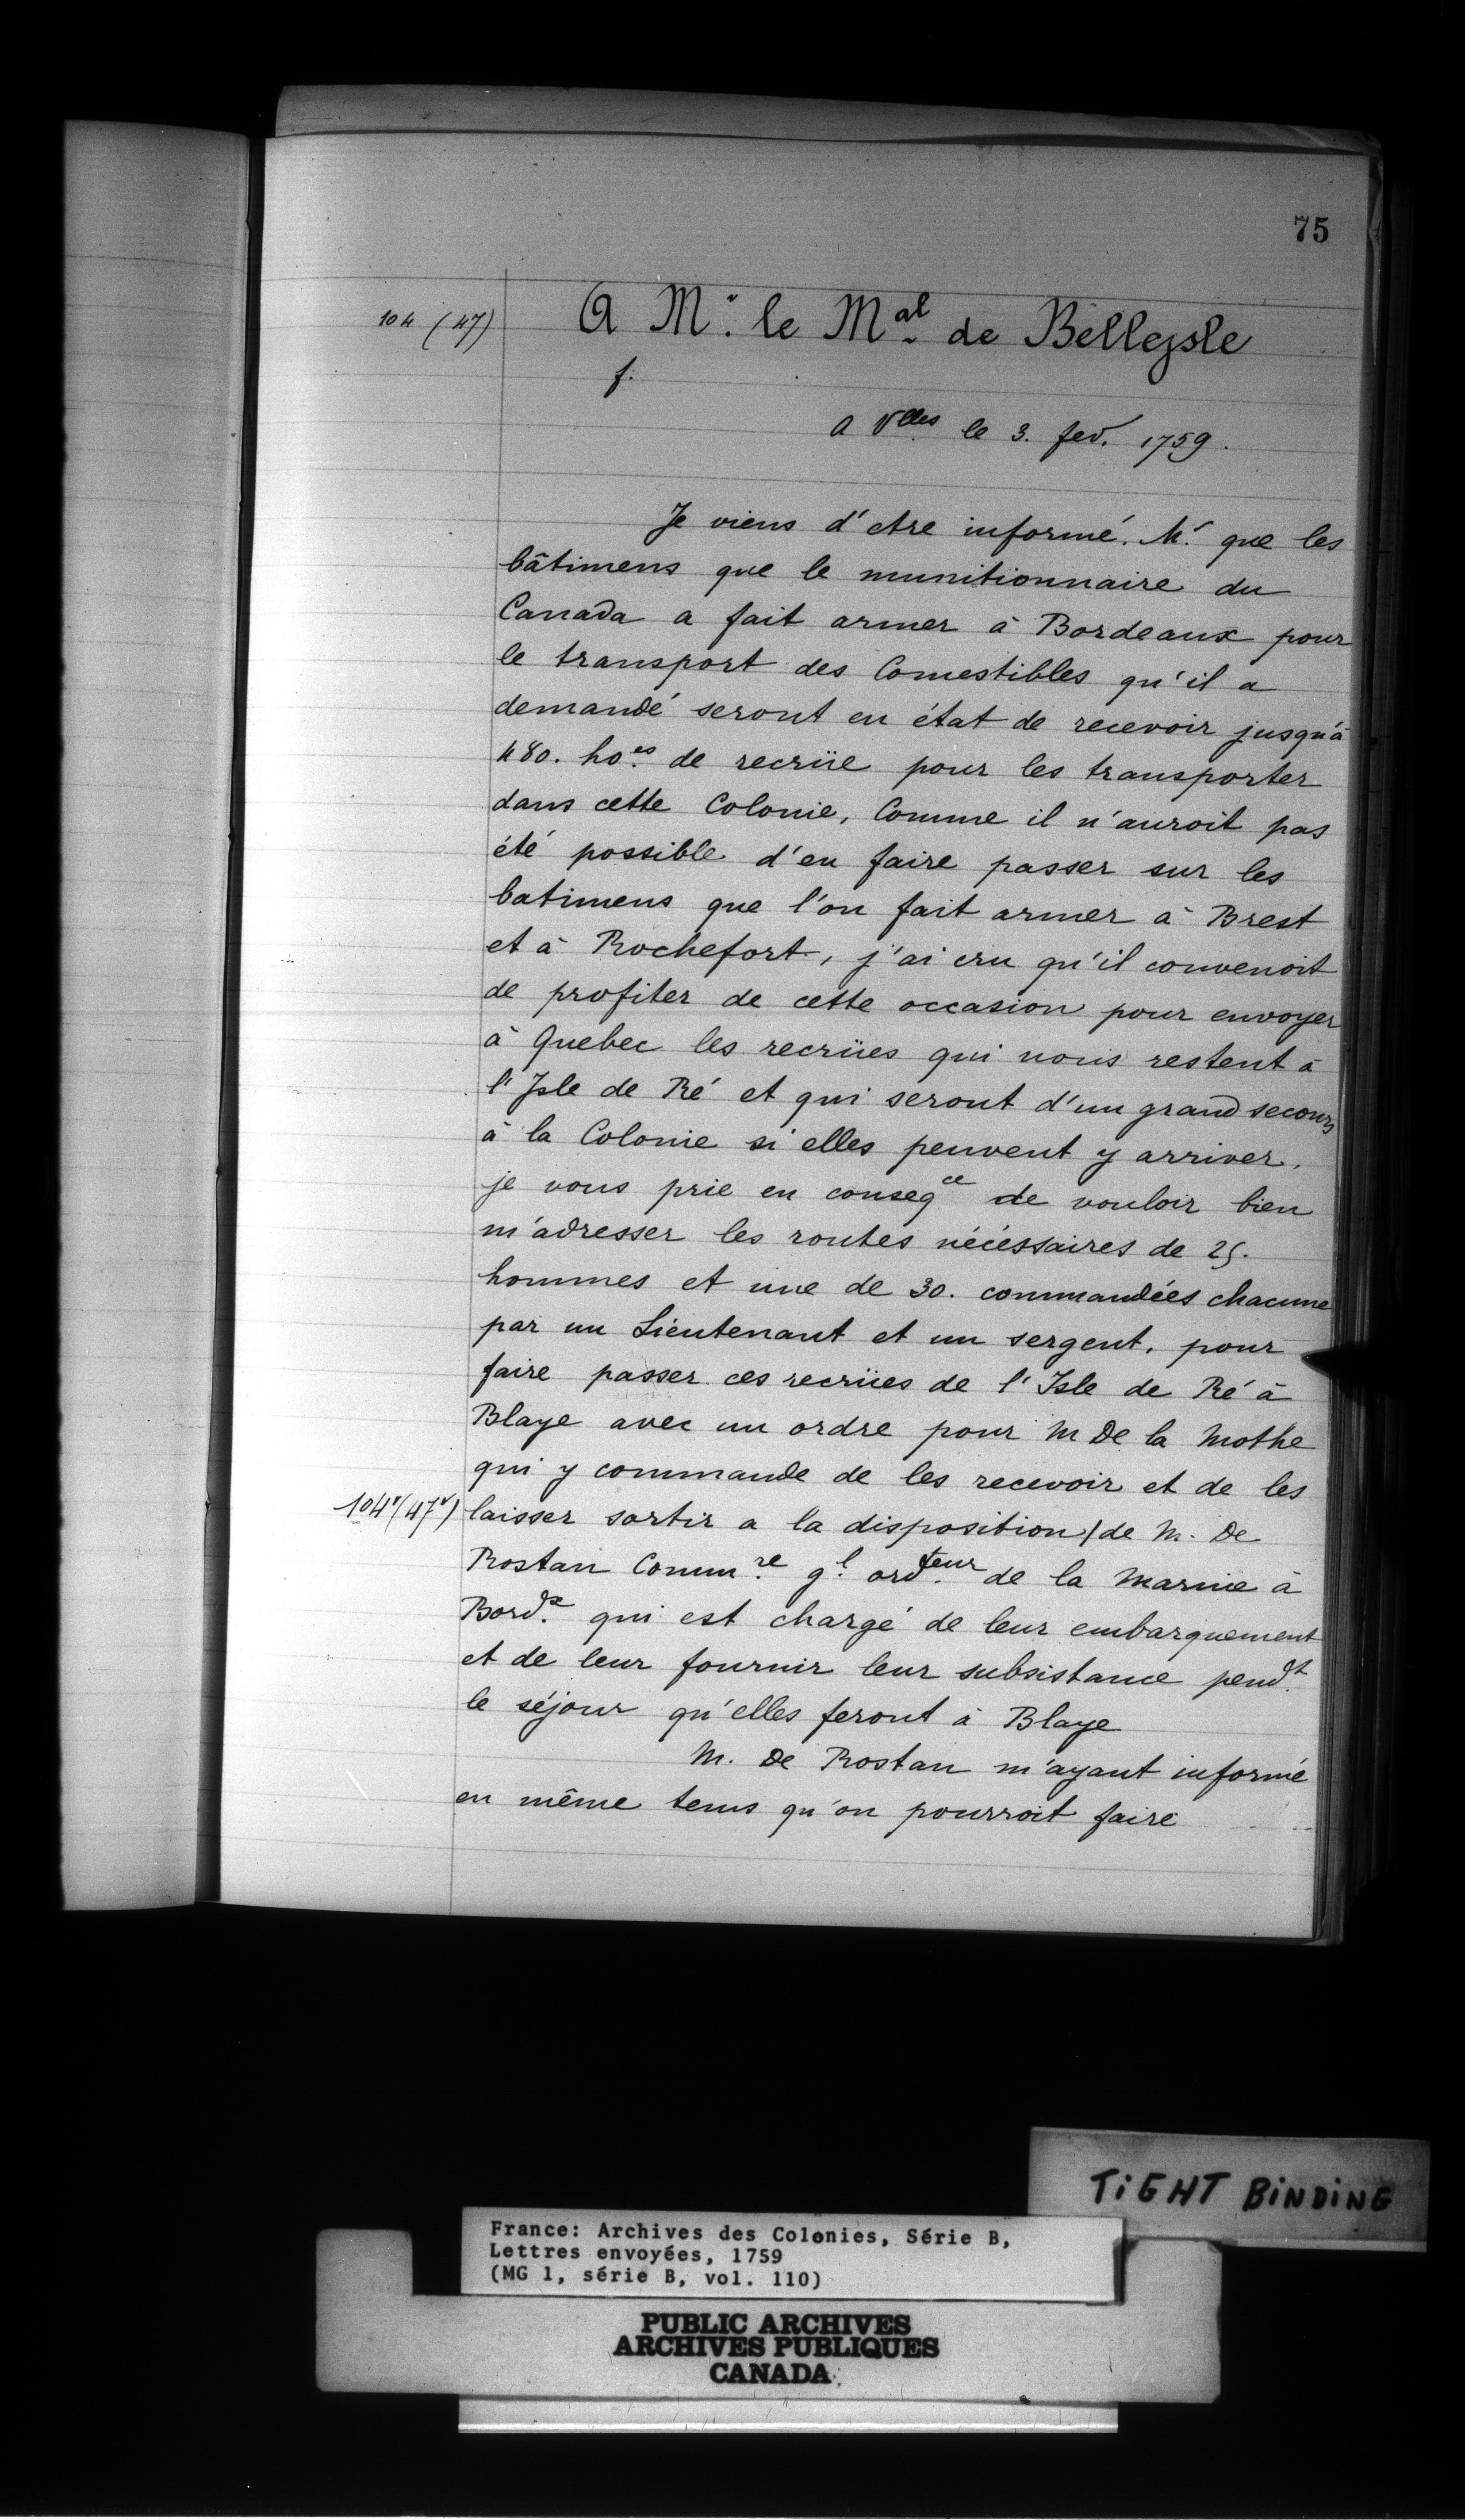 75
104 (47)
A Mr. le Mal de Bellejsle
f.
a Vlles le 3. fev. 1759.
Je viens d'etre informé. Mr. que les
bâtimens que le munitionnaire du
Canada a fait armer à Bordeaux pour
le transport des Comestibles qu'il a
demandé seront en état de recevoir jusqu'à
480. hoes. de recrüe pour les transporter
dans cette Colonie, Comme il n'auroit pas
été possible d'en faire passer sur les
batimens que l'on fait armer à Brest
et à Rochefort, j'ai cru qu'il convenoit
de profiter de cette occasion pour envoyer
à Quebec les recrües qui nous restent à
l'Isle de Ré et qui seront d'un grand secours
à la Colonie si elles peuvent y arriver,
je vous prie en conseqce de vouloir bien
m'adresser les routes nécéssaires de 25.
hommes et une de 30. commandées chacune
par un Lieutenant et un sergent, pour
faire passer ces recrües de l'Isle de Ré à
Blaye avec un ordre pour M De la Mothe
qui y commande de les recevoir et de les
104v (47v) laisser sortir a la disposition/de M. De
Rostan Commre. gl. ordteur. de la Marine à
Bordx. qui est chargé de leur embarquement
et de leur fournir leur subsistance pendt.
le séjour qu'elles feront à Blaye
M. De Rostan m'ayant informé
en même tems qu'on pourroit faire
TIGHT BINDING
France: Archives des Colonies, Série B,
Lettres envoyées, 1759
(MG 1, série B, vol. 110)
PUBLIC ARCHIVES
ARCHIVES PUBLIQUES
CANADA